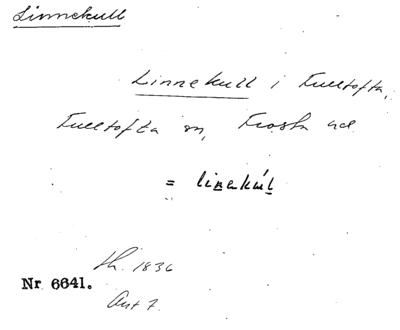 Linnekull
Linnekull i Fulltofta,
Fulltofta sn, Frosta hd
= linekul
Lh. 1836
Nr 6641.
Avs 7.